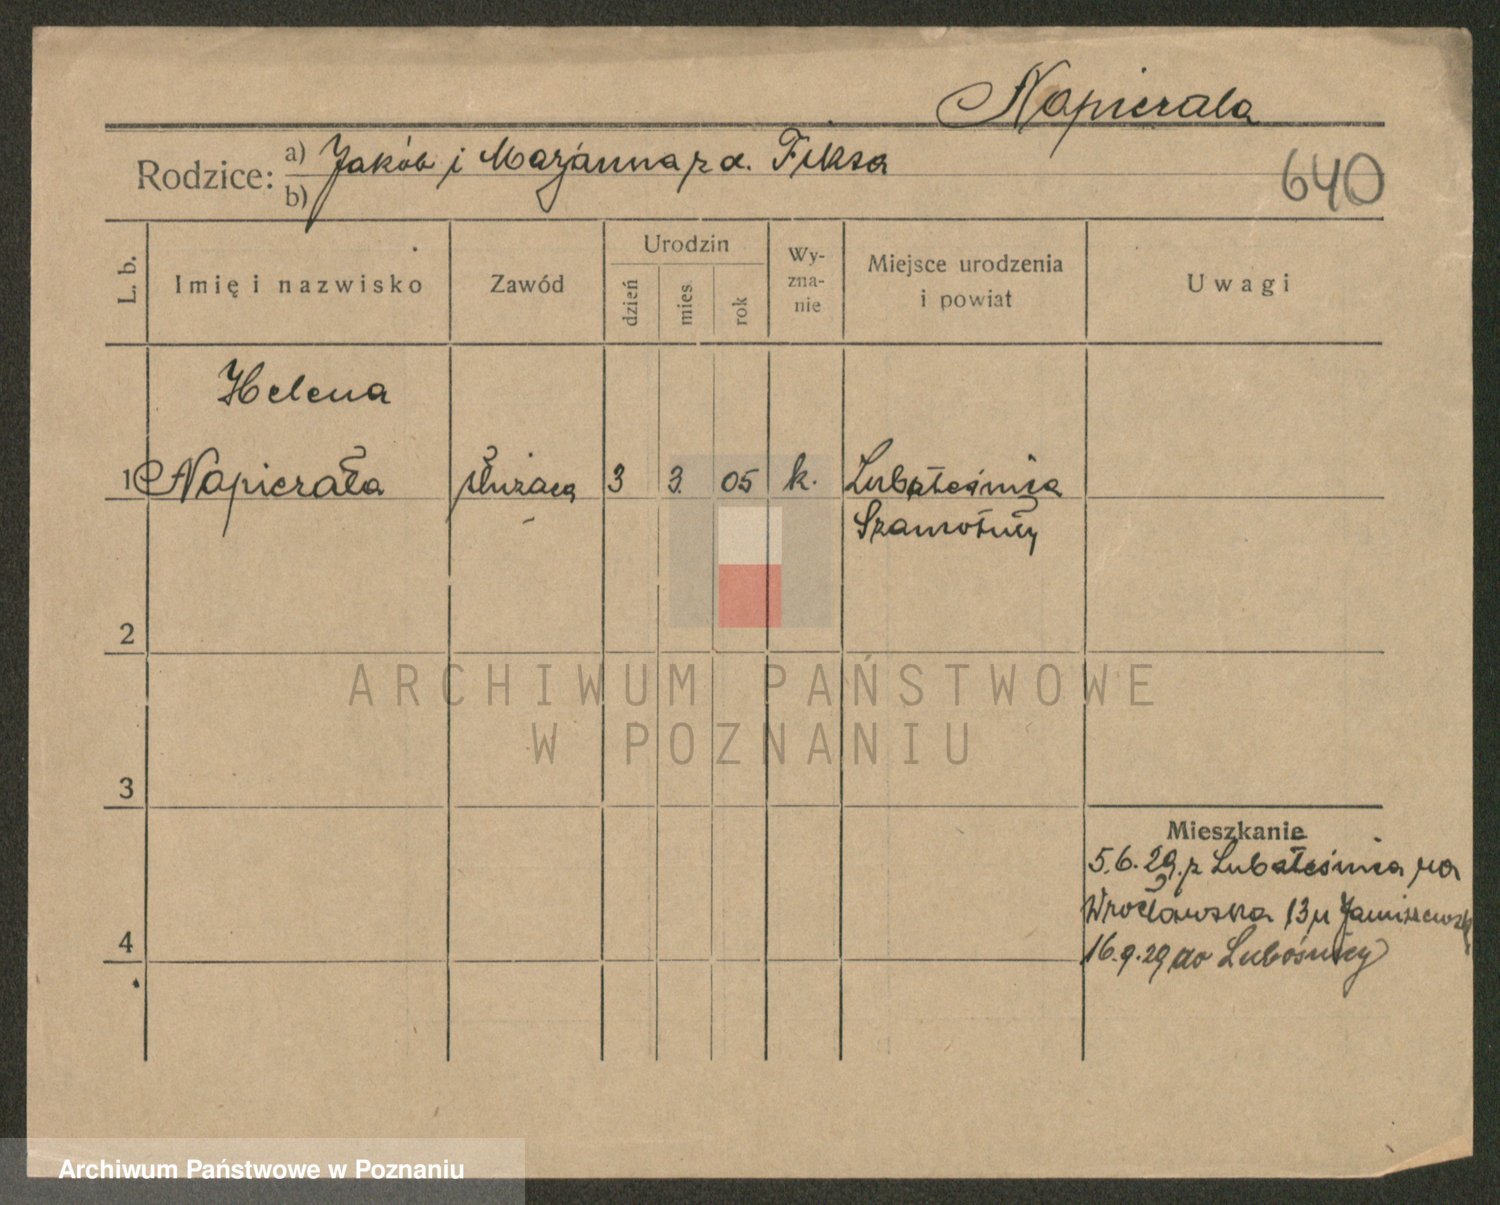 Napierala
Rodzice: a) Jakób i Marjanna z d. Fiksa
b)
640
L. b.
Imię i nazwisko
Zawód
Urodzin
dzień
mies
rok
Wy-
zna-
nie
Miejsce urodzenia
i powiat
Uwagi
Helena
1 Napierała służąca 3 3. 05 k. Lubatośnica
Szamotuły
2
ARCHIWUM PAŃSTWOWE
W POZNANIU
3
Mieszkanie
5.6.29. z na
Wrocławska 13 u
4
16.9.29 do Lubośnicy
Archiwum Państwowe w Poznaniu